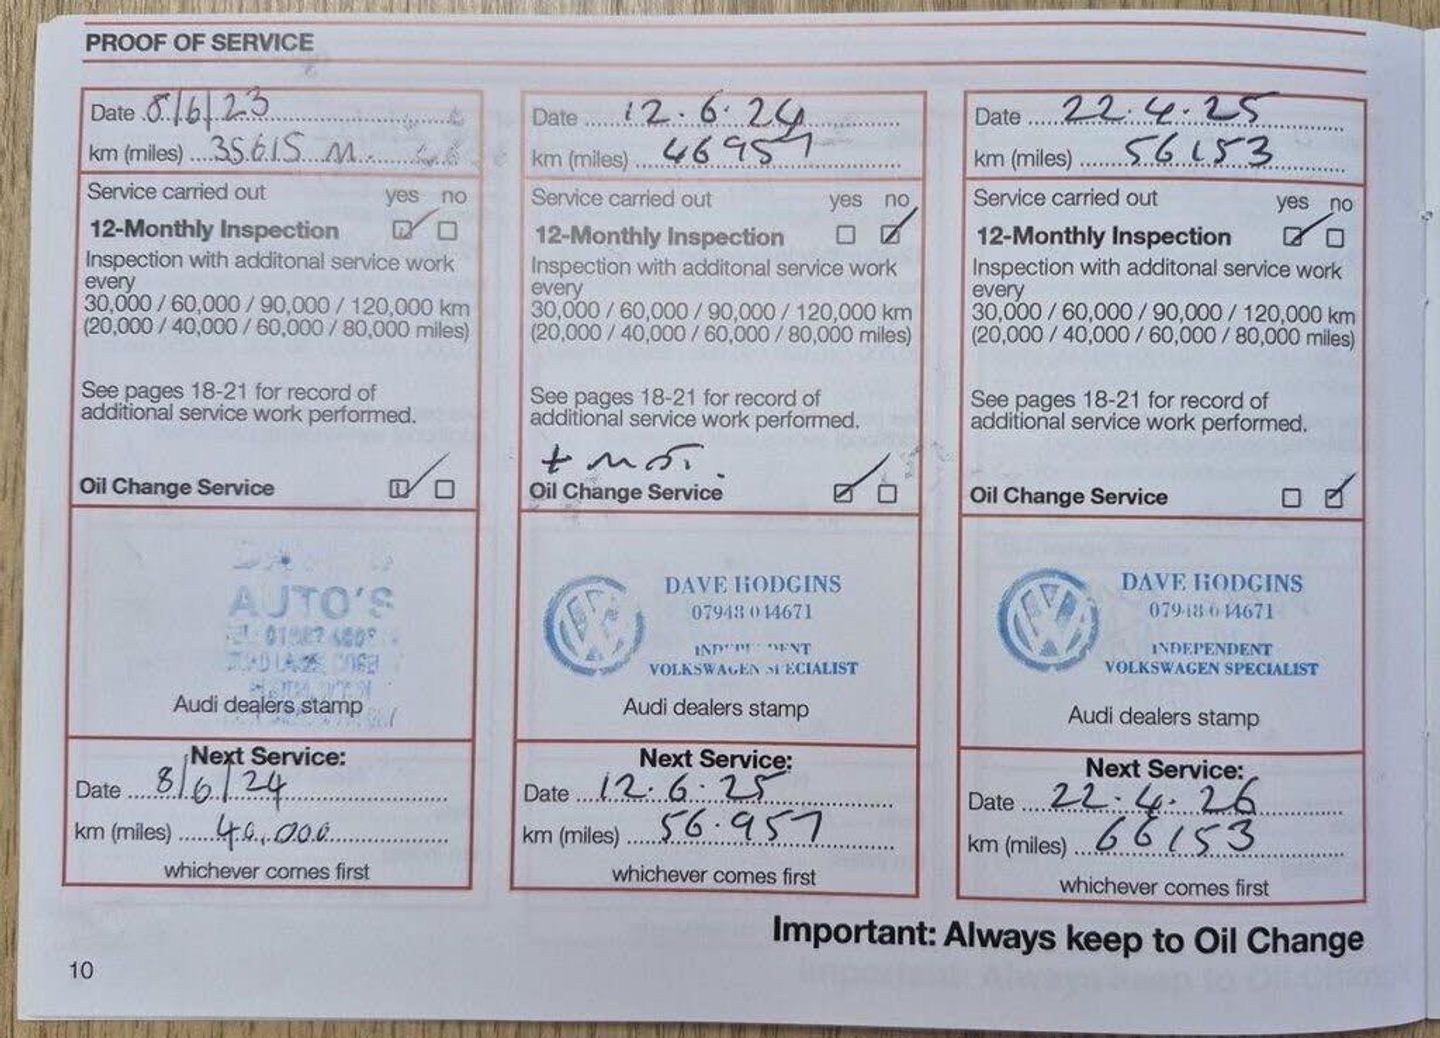 PROOF OF SERVICE
Date 8/6/23
km (miles) 35615 M.
Service carried out yes no
12-Monthly Inspection
Inspection with additonal service work
every
30,000 / 60,000 / 90,000 / 120,000 km
(20,000 / 40,000 / 60,000 / 80,000 miles)
See pages 18-21 for record of
additional service work performed.
Oil Change Service
AUTO'S
Audi dealers stamp
Next Service:
Date 8/6/24
km (miles) 40,000
whichever comes first
Date 12.6.24
km (miles) 46957
Service carried out yes no
12-Monthly Inspection
Inspection with additonal service work
every
30,000 / 60,000 / 90,000 / 120,000 km
(20,000 / 40,000 / 60,000 / 80,000 miles)
See pages 18-21 for record of
additional service work performed.
+ MOT.
Oil Change Service
DAVE HODGINS
07948 044671
INDEPENDENT
VOLKSWAGEN SPECIALIST
Audi dealers stamp
Next Service:
Date 12.6.25
km (miles) 56.957
whichever comes first
Date 22.4.25
km (miles) 56153
Service carried out yes no
12-Monthly Inspection
Inspection with additonal service work
every
30,000 / 60,000 / 90,000 / 120,000 km
(20,000 / 40,000 / 60,000 / 80,000 miles)
See pages 18-21 for record of
additional service work performed.
Oil Change Service
DAVE HODGINS
INDEPENDENT
VOLKSWAGEN SPECIALIST
Audi dealers stamp
Next Service:
Date 22.4.26
km (miles) 66153
whichever comes first
Important: Always keep to Oil Change
10